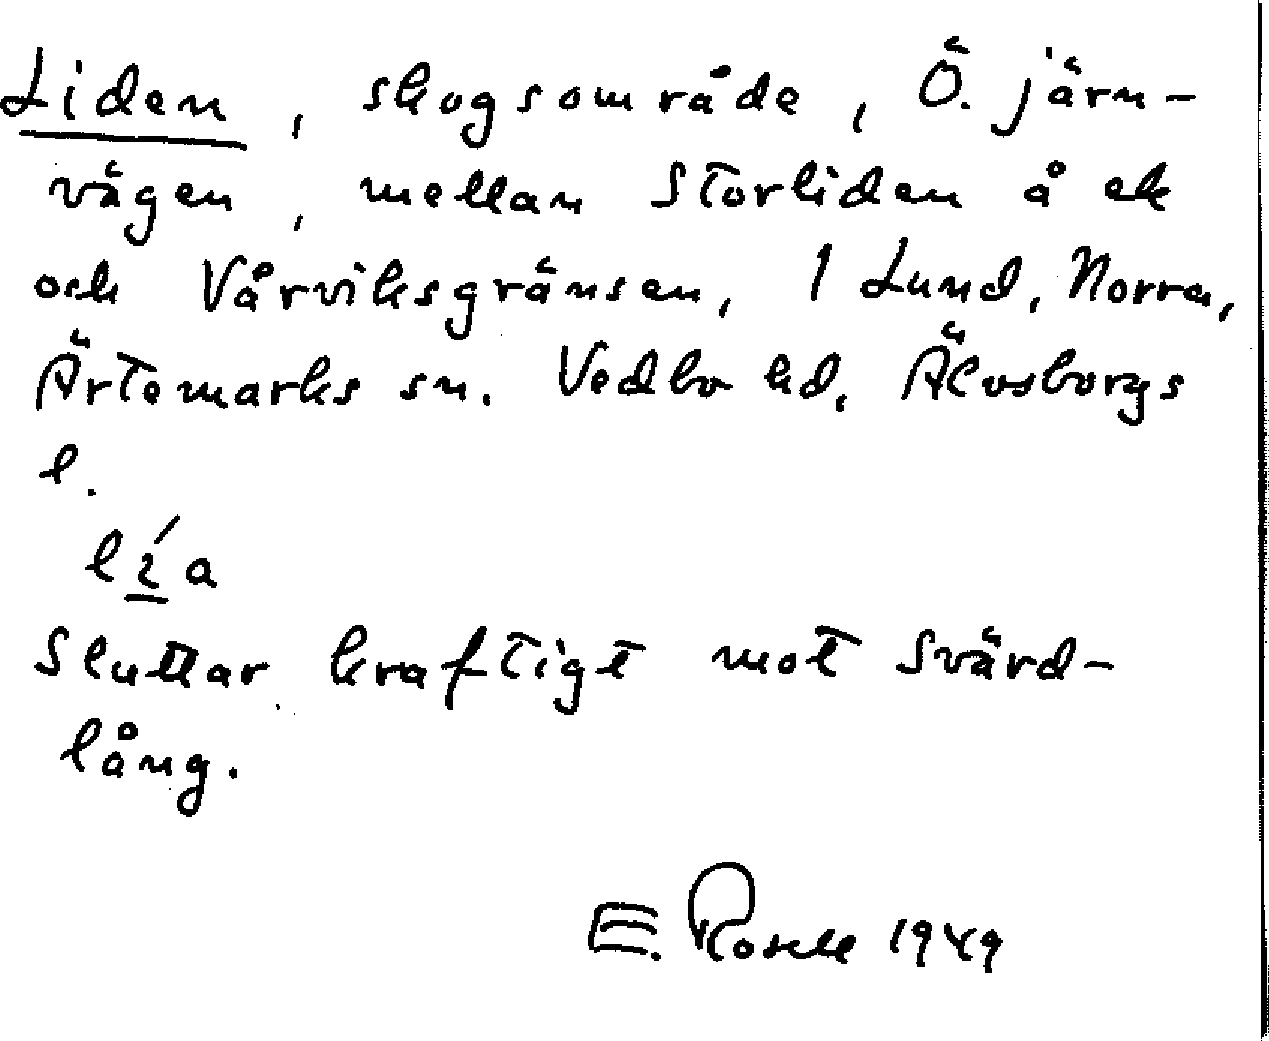 Liden, skogsområde, Ö. järn-
vägen, mellan Storliden å ek
och Vårviksgränsen, 1 Lund, Norra,
Ärtemarks sn. Vedbo hd, Älvsborgs
l.
lı́a
Sluttar kraftigt mot Svärd-
lång.
E. Rosell 1949